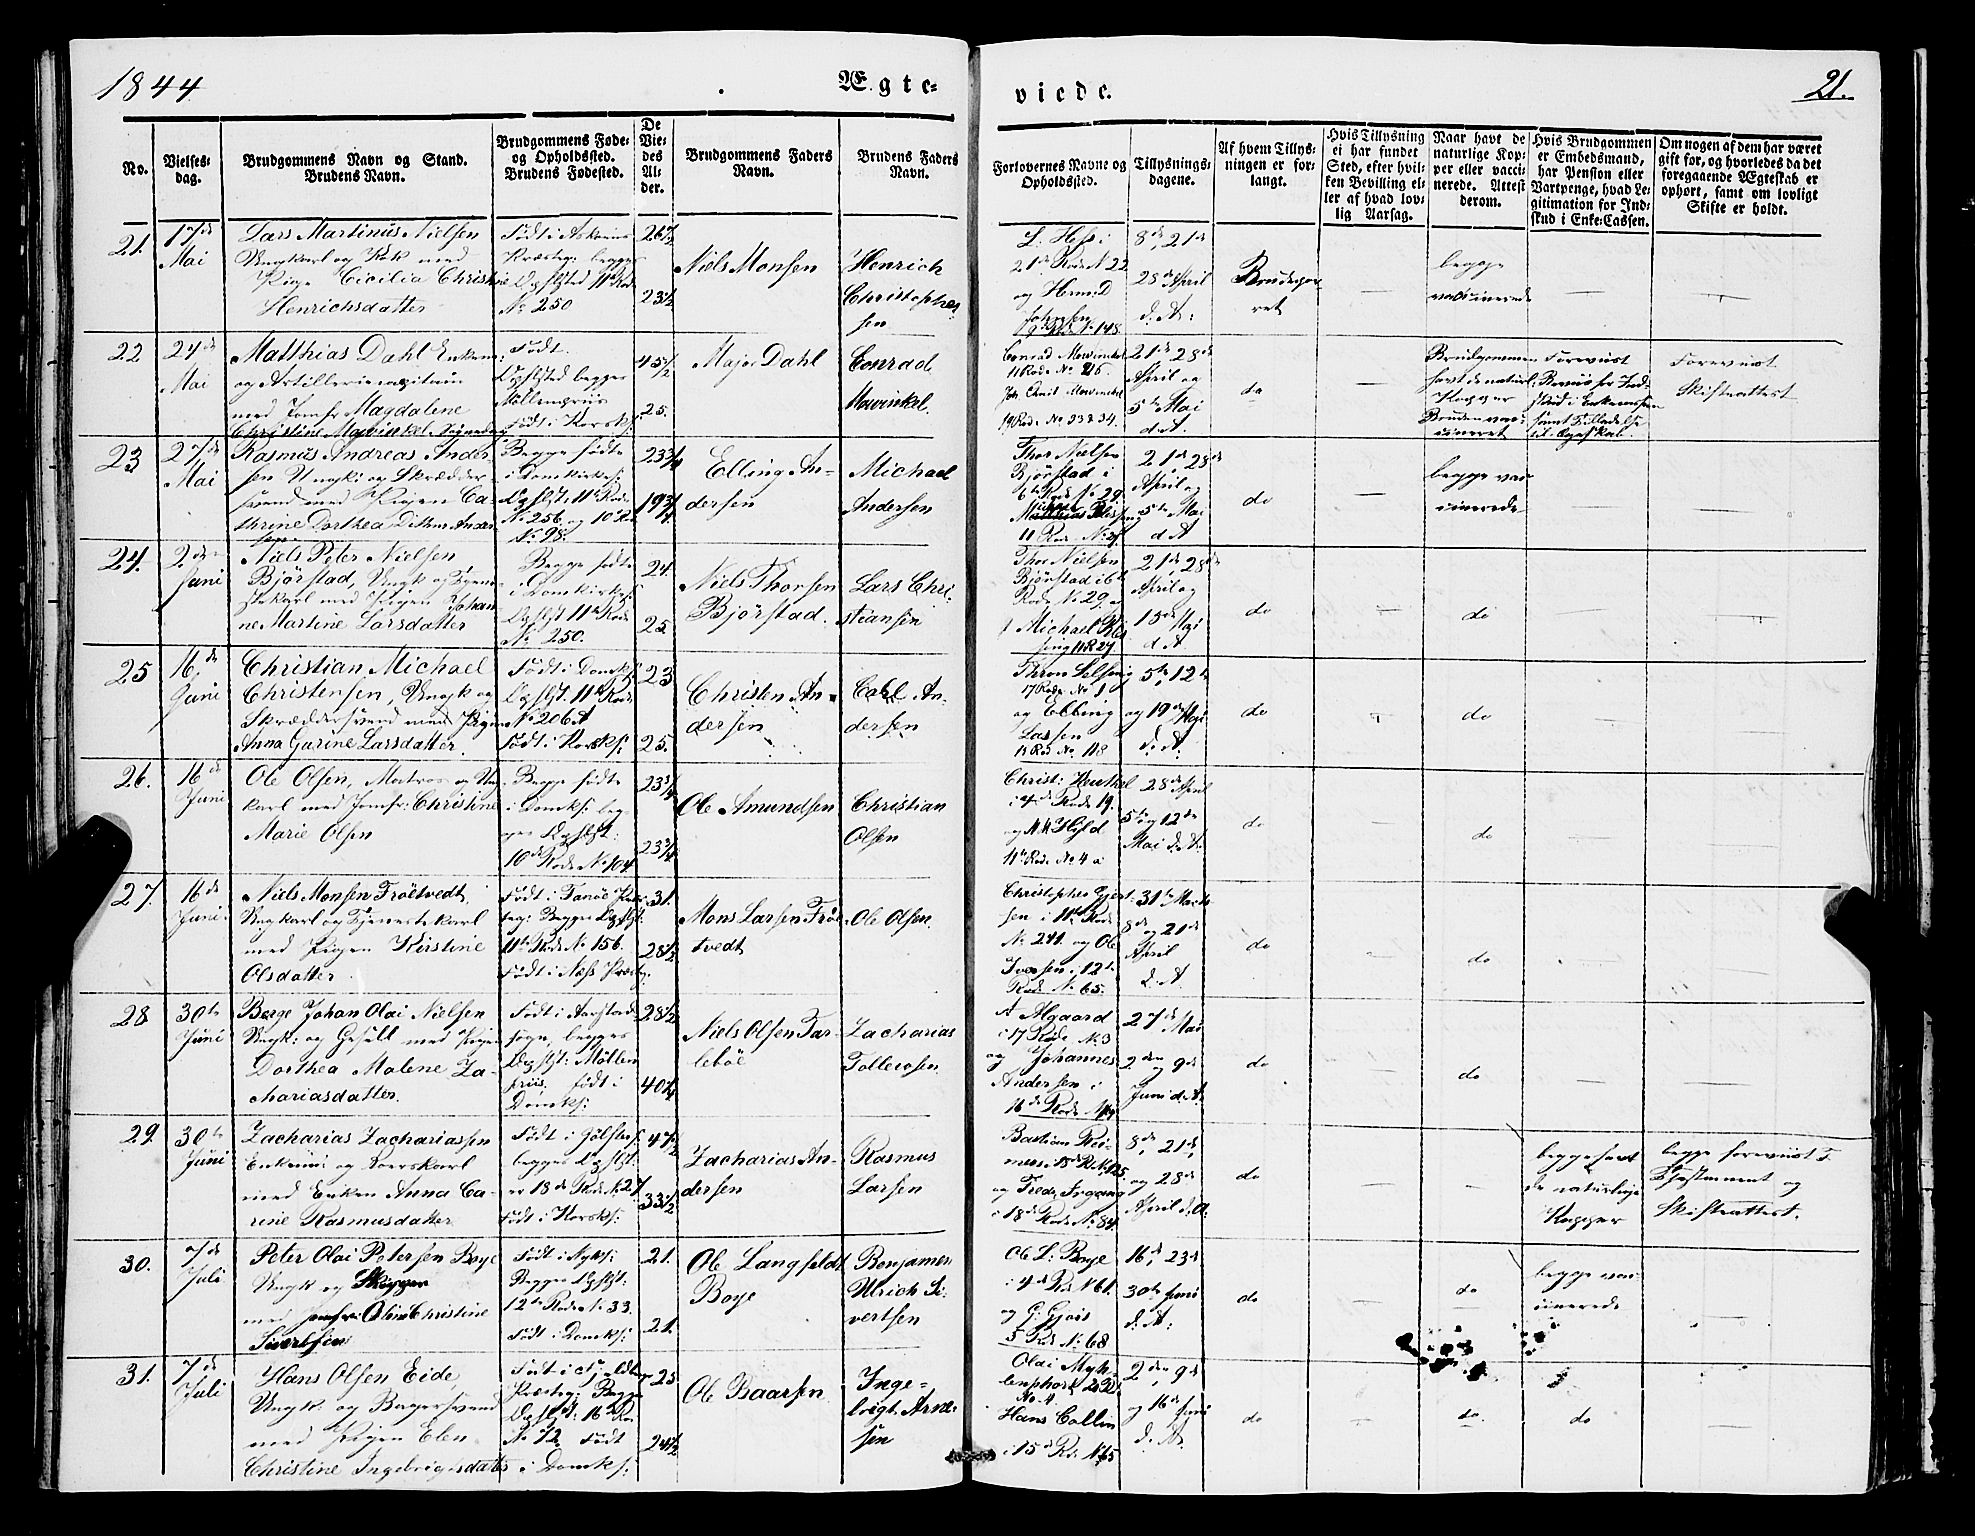 1844
Ægte-
viede.
21.
No.
Vielses-
dag.
Brudgommens Navn og Stand.
Brudens Navn.
Brudgommens Føde-
og Opholdssted.
Brudens Fødested.
De
Vie-
des
Al-
der.
Brudgommens Faders
Navn.
Brudens Faders
Navn.
Forlovernes Navne og
Opholdssted.
Tillysnings-
dagene.
Af hvem Tillys-
ningen er for-
langt.
Hvis Tillysning
ei har fundet
Sted, efter hvil-
ken Bevilling el-
ler af hvad lov-
lig Aarsag.
Naar havt de
naturlige Kop-
per eller vacci-
nerede. Attest
derom.
Hvis Brudgommen
er Embedsmand,
har Pension eller
Vartpenge, hvad Le-
gitimation for Ind-
skud i Enke-Cassen.
Om nogen af dem har været
gift før, og hvorledes da det
foregaaende Ægteskab er
ophørt, samt om lovligt
Skifte er holdt.
21.
17de
Mai
Lars Martinus Nielsen
Ungkarl og Kok med
Pige Cicilia Christine
Henrichsdatter
Født i Askevins
Præsteg: begges
Ophlsted 11te Rode
No 250
26 1/2
23 1/2
Niels Monsen
Henrich
Christopher
sen
L: Hess i
21de Rode N 22
og Hermd
Johnsen
19de Rode No 148
8de, 21de
28de April
d: A:
Brudepar
ret
begge
vaccinerede
22
24de
Mai
Matthias Dahl Enkem:
og Artilleriecapitain
med Jomfr. Magdalene
Christine Mowinkel
Født
Ophlsted begges
Møllenpriis
født i Korsk:
45 1/2
25.
Major Dahl
Conrad
Mowinkel.
Conrad Mowinkel
11 Rode No 26.
Joh: Christ Mowinkel
19 Rod: No 33 & 34.
21de 28de
April og
5te Mai
d A.
do
Brudgommen
havt de naturl:
Kopper
Bruden vac-
cineret
Foreviist
Beviis for Ind-
skud i Enkecassen
samt Tilladelse
til Egteskab.
Foreviist
Skifteattest
23
27de
Mai
Rasmus Andreas Ander
sen Ungk: og Skrædder-
svend med Pigen Ca-
thrine Dorthea Ander
sen
Begge fødte
i Domkirkes:
Ophlst: 11te Rode
No 256 og 10 Rod
No 98.
23 3/4
19 3/4
Elling An-
dersen
Michael
Andersen
Thor Nielsen
Bjørstad i
6te Rode No 29.
11 Rode
21de 28de
April og
5te Mai
d A
do
begge vac
cinerede
24.
2den
Juni
Niels Peter Nielsen
Bjørstad, Ungk og Tjene-
stekarl med Pigen Johan
ne Martine Larsdatter
Begge fødte
i Domkirkes:
Ophlst 11te Rode
No 250.
24.
25.
Niels Thorsen
Bjørstad.
Lars Chri-
stiansen
Thor Nielsen
Bjørstad i 6te
Rode No 29.
Michael
11 R 27
21de 28de
April og
15de Mai
d A
do
do
25
16de
Juni
Christian Michael
Christensen, Ungk og
Skræddersvend med Pigen
Anna Gurine Larsdatter.
Født i Domk:
Ophlst: 11te Rode
No 206 A
Født i Korsk:
23
25.
Christen An-
dersen
Carl An-
dersen
17 Rode No 1
og Elling
Lassen
13 Rod No 118
5te, 12te
og 19de Mai
d: A:
do
do
26.
16de
Juni
Ole Olsen, Matros og Ung
karl med Jomfr: Christine
Marie Olsen
Begge fødte
i Domks: beg
ges Ophlst:
10de Rode No 104
23 3/4
23 3/4
Ole Amundsen
Christian
Olsen
Christ: Henkel
Rode 19.
11te Rode No 4 a
28de April
5te og 12te
Mai d. A:
do
do
27.
16de
Juni
Niels Monsen Trøetvedt
Ungkarl og Tjenestekarl
med Pigen Kirstine
Olsdatter
Født i Fanøe Præ
steg: Begges Ophlst:
11te Rode No 156.
Født i Næss Præstg.
31.
28 1/2
Mons Larsen Trøe-
tvedt
Ole Olsen.
Christopher Gjert-
sen i 11te Rode
No 241. og Ole
Iversen i 12te
Rode No 65.
31te Marts
8de og 21de
April
d. A
do
do
28
30te
Juni
Berge Johan Olai Nielsen
Ungk: og Gesell med Pigen
Dorthea Malene Za-
chariasdatter.
Født i Aarstad
sogn, begges
Ophlst: Møllen
priis. født i
Domks:
28 1/2
40 1/4
Niels Olsen Tar-
lebøe
Zacharias
Tollevsen.
A Algaard
i 17 Rode No 3
og Johannes
Andersen i
16de Rode
27de Mai
2den og 9de
Juni d. A.
do
do
29.
30te
Juni
Zacharias Zachariassen
Enkem: og Dorskarl
med Enken Anna Ca-
rine Rasmusdatter
Født i Jølster:
begges Ophlst:
er 18de Rode No 27
Født i Korsks:
47 1/2
33 1/2
Zacharias An-
dersen
Rasmus
Larsen
Bastian Rei-
mers i 15de R No 125
og Fredr: Irgang
i 18de Rode No 84
8de, 21de
og 28de
April d. A.
do
begge havt
de naturlige
Kopper
begge foreviist T.
Testament og
Skifteattest.
30.
7de
Juli
Peter Olai Petersen Boye
Ungk og Skipper
med Jomfru Oline Christine
Sivertsen
Født i Nyks:
Begges Ophlst:
12te Rode No 33.
Født i Domks:
21.
21.
Ole Langfeldt
Boye
Benjamin
Ulrich Si-
vertsen
Ole L: Boye
i 4de Rod N 61.
og G: Gjøis
5 Rod No 68
16de, 23de
30te Juni
d. A:
do
do
begge vac
cinerede
31.
7de
Juli
Hans Olsen Eide,
Ungk og Bagersvend
med Pigen Elen
Christine Ingebrigtsdatter
Præsteg: Begges
Ophlst: 16de Ro
No 72. Født
i Domks:
25
24 1/2
Ole Baarsen
Inge-
brigt Arne-
sen
Olai Myh-
lenphort
No 4
Hans Collin
i 15de Rod: N 75
2den, 9de
og 16de Juni
d. A:
do
do
do